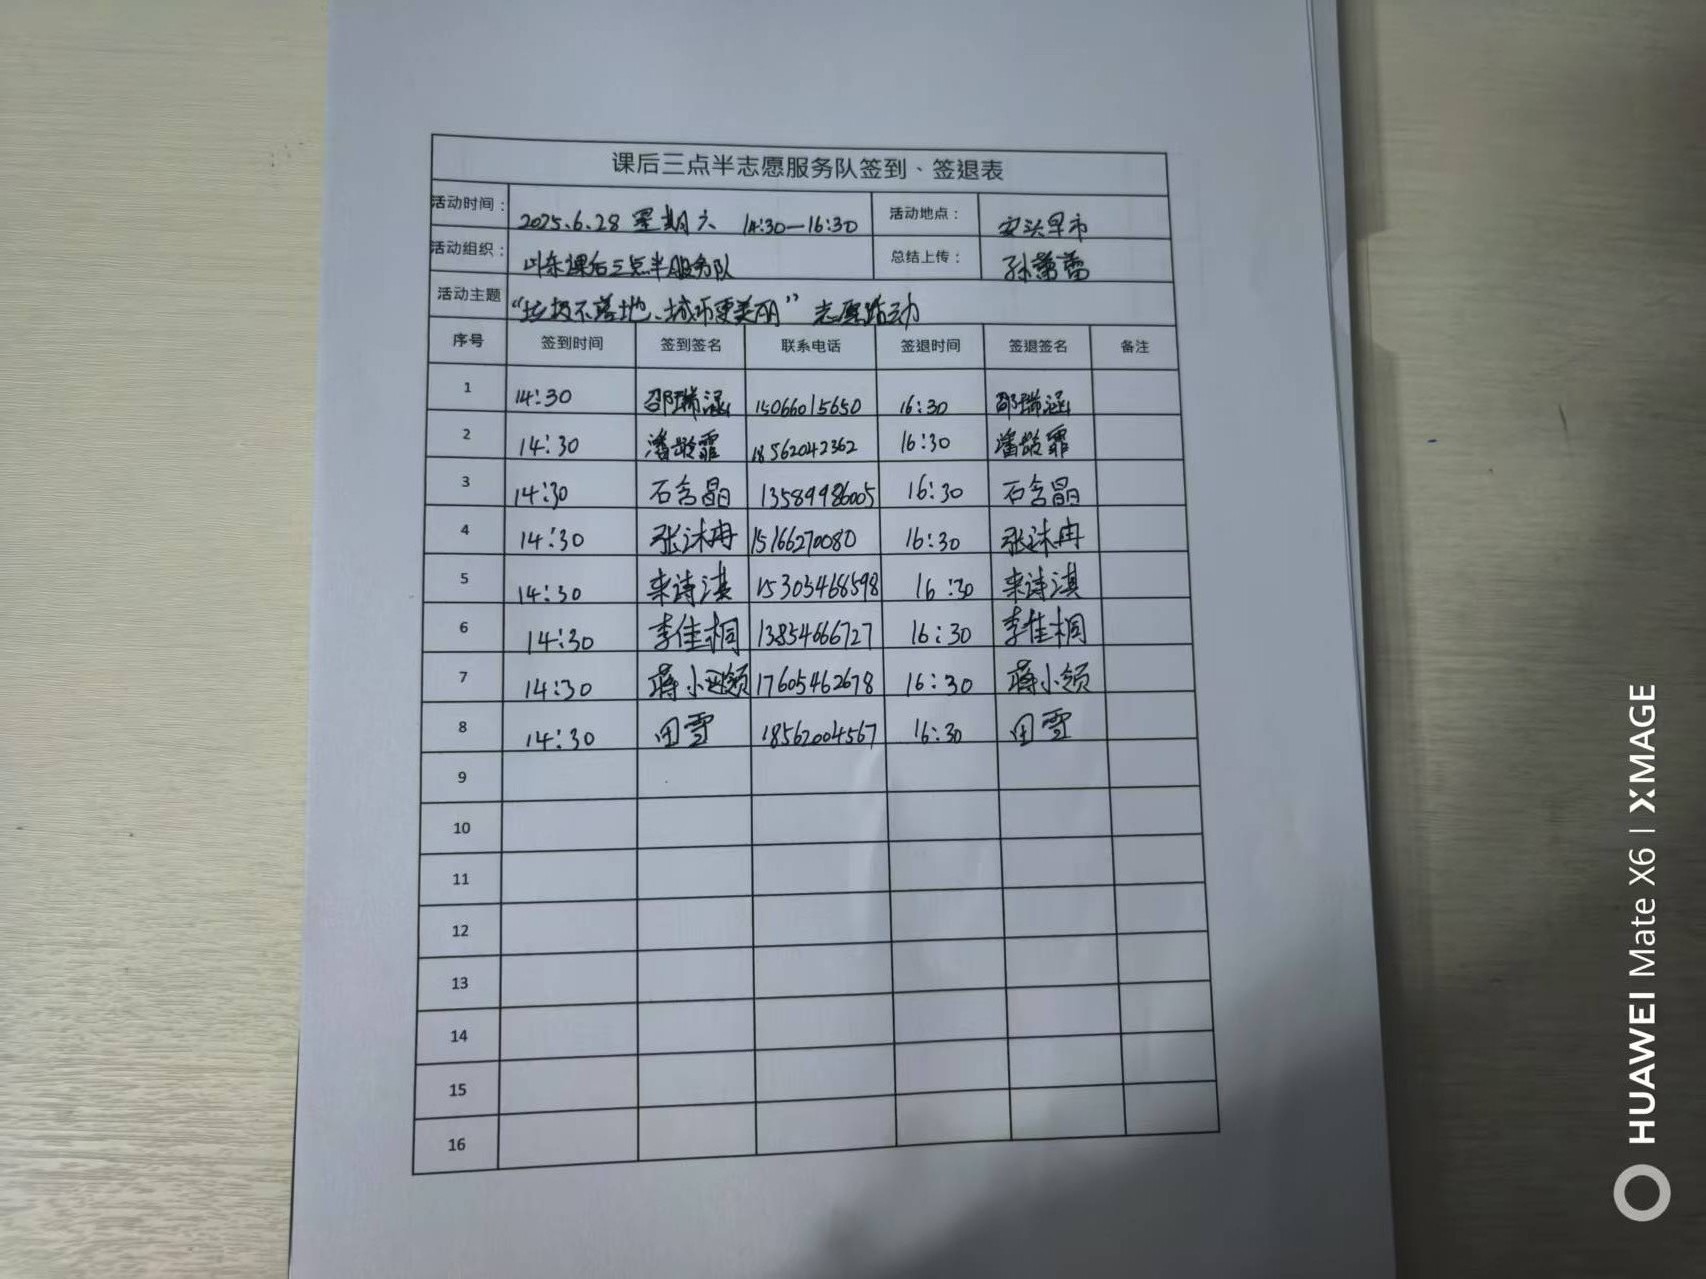 课后三点半志愿服务队签到、签退表
活动时间： 2025.6.28 星期六 14:30—16:30 活动地点： 安头早市
活动组织： 山东课后三点半服务队 总结上传： 孙蕾蕾
活动主题 “垃圾不落地、城市更美丽”志愿活动
序号 签到时间 签到签名 联系电话 签退时间 签退签名 备注
1 14:30 邵瑞涵 15066015650 16:30 邵瑞涵
2 14:30 潘懿霏 18562042362 16:30 潘懿霏
3 14:30 石含晶 13589986005 16:30 石含晶
4 14:30 张沐冉 15166270080 16:30 张沐冉
5 14:30 来诗淇 15305468598 16:30 来诗淇
6 14:30 李佳桐 13854666727 16:30 李佳桐
7 14:30 蒋小颂 17605462678 16:30 蒋小颂
8 14:30 田雪 18562004567 16:30 田雪
9
10
11
12
13
14
15
16
HUAWEI Mate X6 | XMAGE